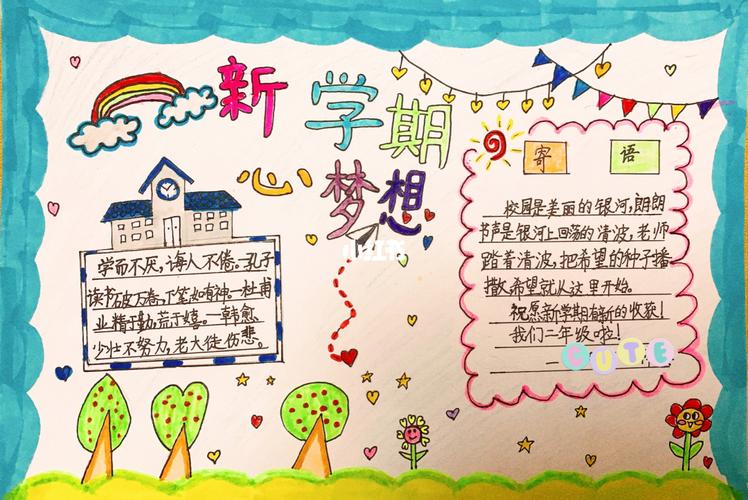 新学期
心梦想
学而不厌，诲人不倦。孔子
读书破万卷，下笔如有神。杜甫
业精于勤，荒于嬉。——韩愈
少壮不努力，老大徒伤悲。
寄语
校园是美丽的银河，朗朗
书声是银河上回荡的清波，老师
踏着清波，把希望的种子播
撒，希望就从这里开始。
祝愿新学期有新的收获！
我们二年级啦！
CUTE
小红书